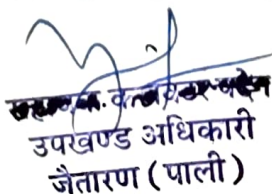 उपखण्ड अधिकारी
जैतारण (पाली)